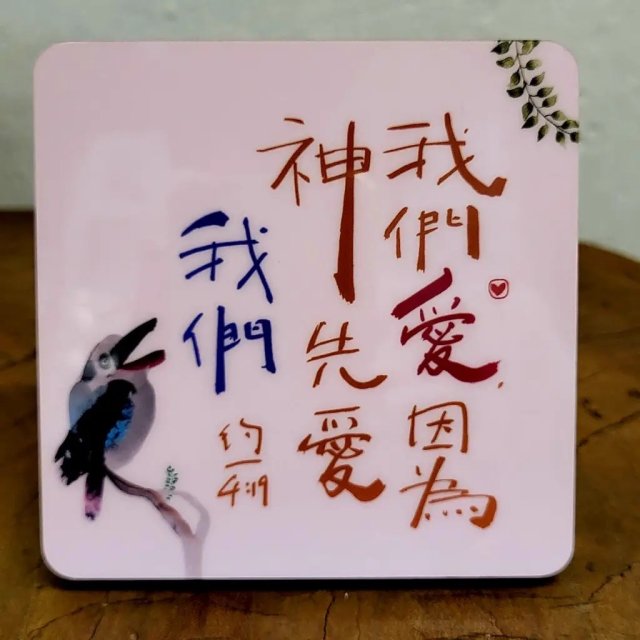 我們愛,因為
神先愛
我們
約一
4:19